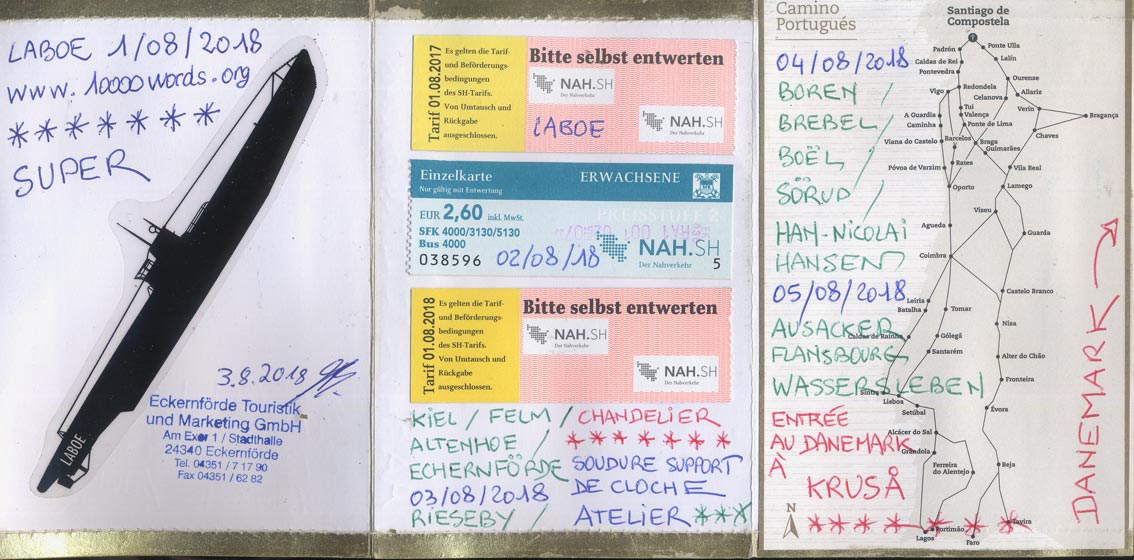 LABOE 1/08/2018
www.10000words.org
*******
SUPER
LABOE
3.8.2018
Eckernförde Touristik
und Marketing GmbH
Am Exer 1 / Stadthalle
24340 Eckernförde
Tel. 04351 / 7 17 90
Fax 04351 / 62 82
Tarif 01.08.2017
Es gelten die Tarif-
und Beförderungs-
bedingungen
des SH-Tarifs.
Von Umtausch und
Rückgabe
ausgeschlossen.
Bitte selbst entwerten
NAH.SH
Der Nahverkehr
LABOE
NAH.SH
Der Nahverkehr
Einzelkarte
Nur gültig mit Entwertung
ERWACHSENE
EUR 2,60 inkl. MwSt.
PREISSTUFE 2
SFK 4000/3130/5130
Bus 4000
038596
02/08/18
NAH.SH
Der Nahverkehr
5
Tarif 01.08.2018
Es gelten die Tarif-
und Beförderungs-
bedingungen
des SH-Tarifs.
Von Umtausch und
Rückgabe
ausgeschlossen.
Bitte selbst entwerten
NAH.SH
Der Nahverkehr
NAH.SH
Der Nahverkehr
KIEL / FELM /
ALTENHOF /
ECHERNFÖRDE
03/08/2018
RIESEBY /
CHANDELIER
*******
SOUDURE SUPPORT
DE CLOCHE
ATELIER ***
Camino
Portugués
04/08/2018
BOREN /
BREBEL /
BOËL /
SÖRUP /
HAN-NICOLAI
HANSEN
05/08/2018
AUSACKER
FLANSBOURG
WASSERSLEBEN
ENTRÉE
AU DANEMARK
À
KRUSÅ
*******
DANEMARK
N
Santiago de
Compostela
Padrón
Ponte Ulla
Caldas de Rei
Lalín
Pontevedra
Ourense
Redondela
Vigo
Allariz
Celanova
Tui
Verín
A Guardia
Valença
Bragança
Caminha
Ponte de Lima
Chaves
Viana do Castelo
Barcelos
Braga
Guimarães
Rates
Póvoa de Varzim
Vila Real
Oporto
Lamego
Viseu
Agueda
Guarda
Coimbra
Castelo Branco
Leiria
Batalha
Tomar
Nisa
Caldas de Rainha
Gólegã
Santarém
Alter do Chão
Fronteira
Sintra
Lisboa
Setúbal
Évora
Alcácer do Sal
Grandola
Ferreira
do Alentejo
Beja
Portimão
Tavira
Lagos
Faro